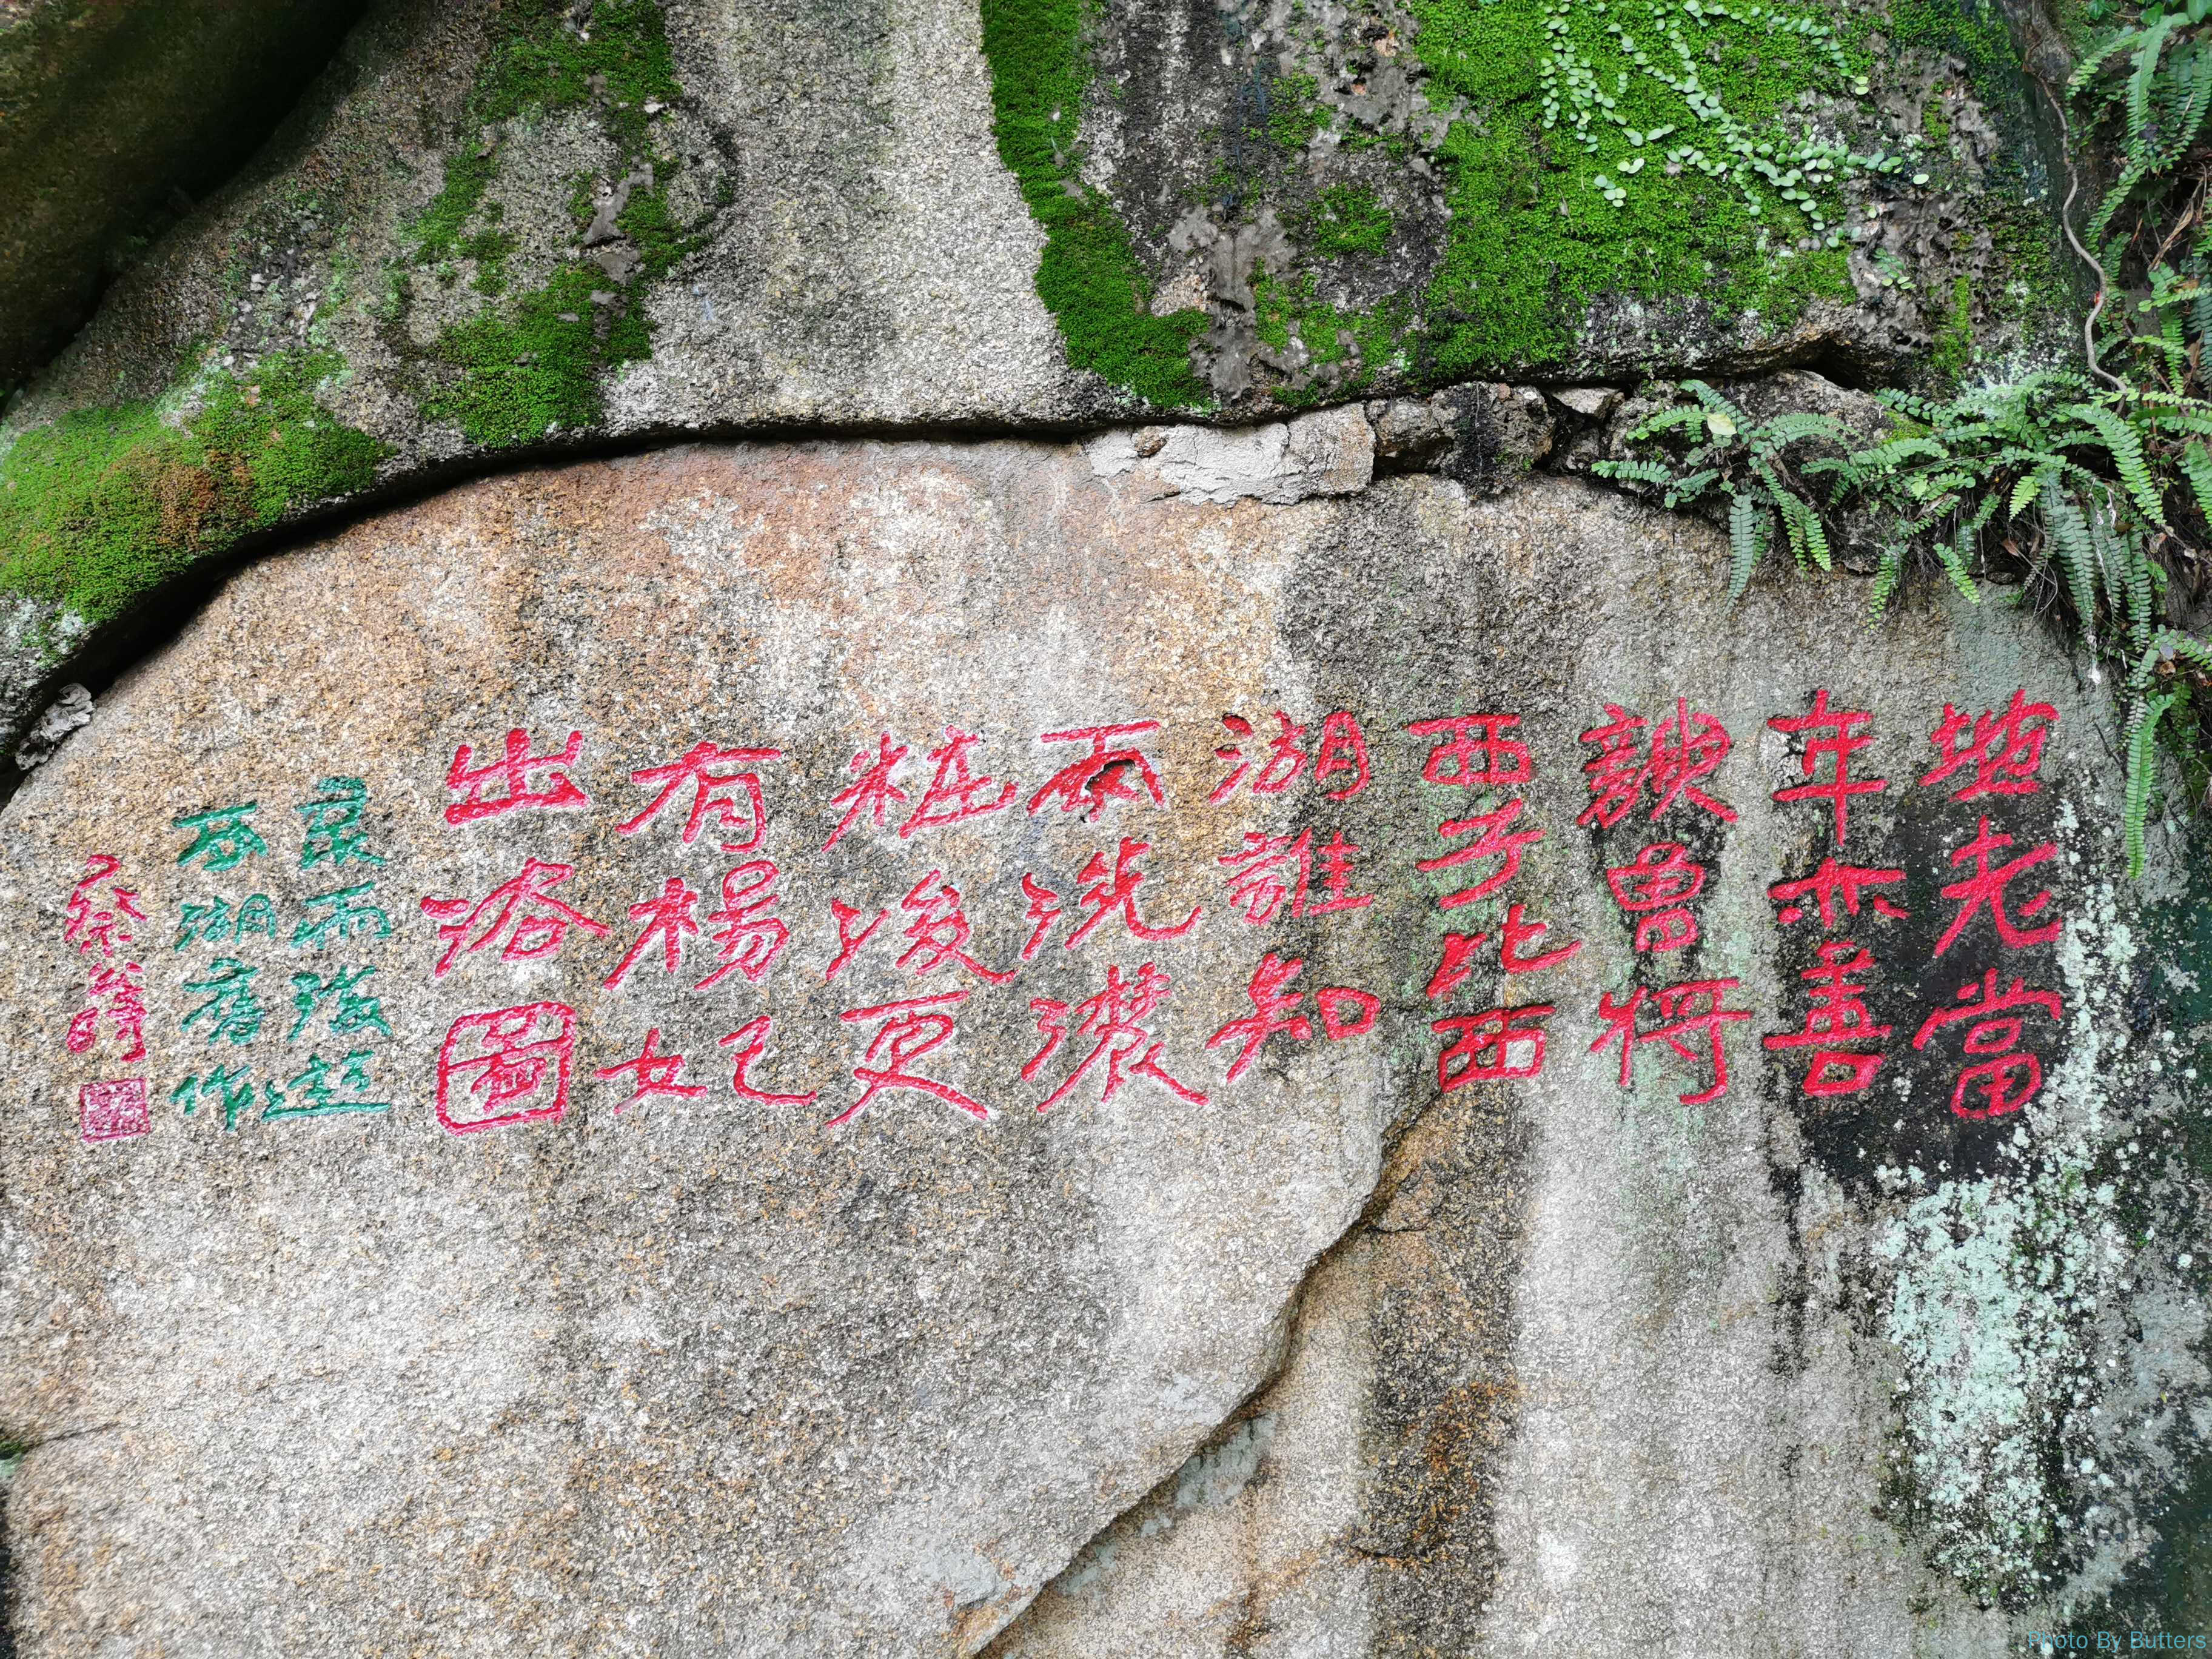 坡老當
年亦善
諛曾將
西子比西
湖誰知
雨洗濃
粧後更
有楊妃
出浴圖
晨雨後遊
西湖舊作
蔡
Photo By Butters